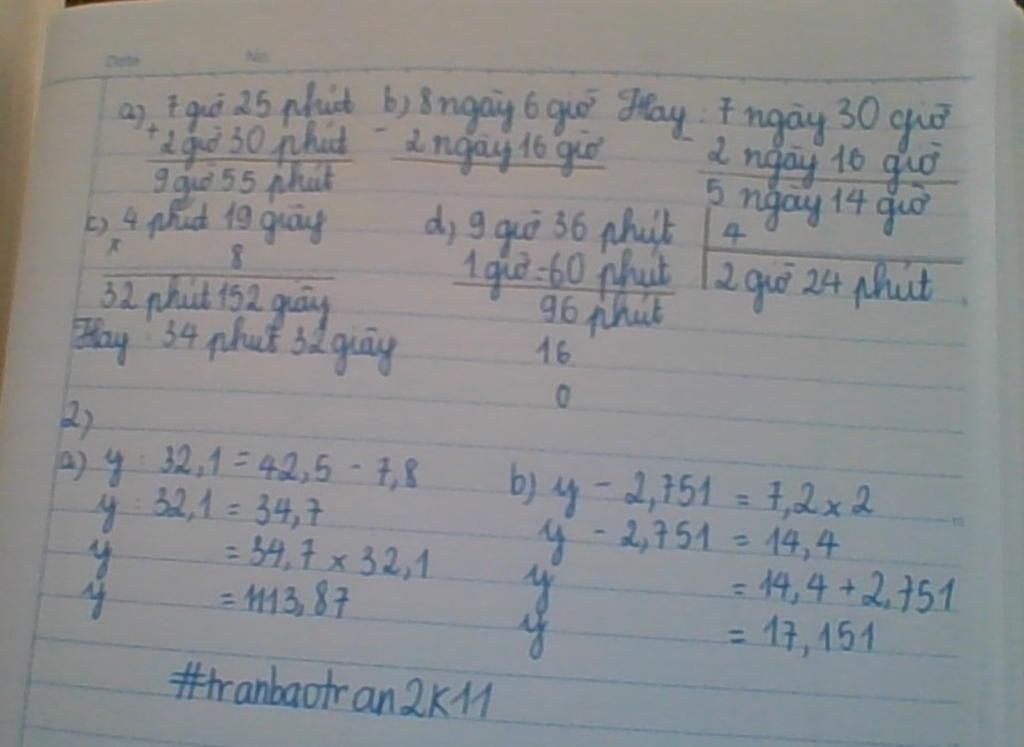 Date No.
a) 7 giờ 25 phút b) 8 ngày 6 giờ Hay : 7 ngày 30 giờ
+ 2 giờ 30 phút - 2 ngày 16 giờ - 2 ngày 16 giờ
9 giờ 55 phút 5 ngày 14 giờ
c) 4 phút 19 giây d) 9 giờ 36 phút 4
x 8 1 giờ = 60 phút 2 giờ 24 phút
32 phút 152 giây 96 phút
Hay : 34 phút 32 giây 16
0
2)
a) y : 32,1 = 42,5 - 7,8 b) y - 2,751 = 7,2 x 2
y : 32,1 = 34,7 y - 2,751 = 14,4
y = 34,7 x 32,1 y = 14,4 + 2,751
y = 1113,87 y = 17,151
#tranbaotran2k11